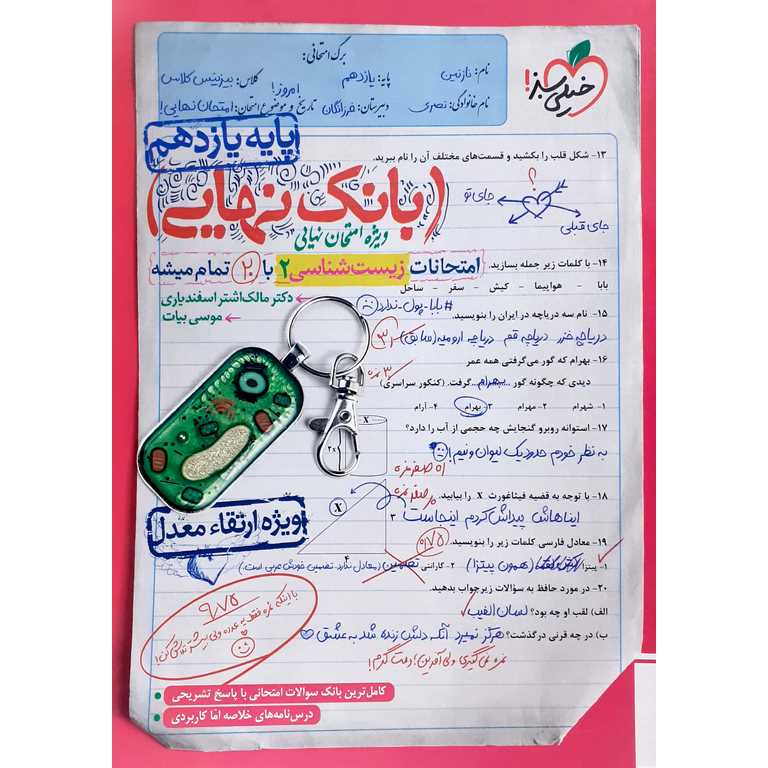 برگ امتحانی:
نام: نازنین
پایه: یازدهم
کلاس: بیزینس کلاس
نام خانوادگی: نصری
دبیرستان: فرزانگان
امروز!
تاریخ و موضوع امتحان: امتحان نهایی!
خیلی سبز!
پایه یازدهم
۱۳- شکل قلب را بکشید و قسمت‌های مختلف آن را نام ببرید.
؟
جای تو
جای قبلی
(بانک نهایی)
ویژه امتحان نهایی
امتحانات زیست‌شناسی ۲ با ۲۰ تمام میشه
دکتر مالک‌اشتر اسفندیاری
موسی بیات
۱۴- با کلمات زیر جمله بسازید.
بابا - هواپیما - کیش - سفر - ساحل
#بابا-پول-ندارد
۱۵- نام سه دریاچه در ایران را بنویسید.
دریاچه خزر دریاچه قم دریاچه ارومیه (سابق)
۱۶- بهرام که گور می‌گرفتی همه عمر
دیدی که چگونه گور بهرام گرفت. (کنکور سراسری)
۱- شهرام ۲- مهرام ۳- بهرام ۴- آرام
۱۷- استوانه روبرو گنجایش چه حجمی از آب را دارد؟
x
2x
به نظر خودم حدود یک لیوان و نیم!
۱۸- با توجه به قضیه فیثاغورث X را بیابید.
X
۳
۴
ایناهاش پیداش کردم اینجاست
۱۹- معادل فارسی کلمات زیر را بنویسید.
۰/۷۵
۱- پیتزا (همون پیتزا) ۲- گارانتی تضمین (معادل ندارد. تضمین خودش عربی است.)
۲۰- در مورد حافظ به سؤالات زیر جواب بدهید.
الف) لقب او چه بود؟ لسان الغیب
ب) در چه قرنی درگذشت؟ هرگز نمیرد آنکه دلش زنده شد به عشق
نمره نمی‌گیری ولی آفرین! دمت گرم!
ویژه ارتقاء معدل
۹/۷۵
کامل‌ترین بانک سوالات امتحانی با پاسخ تشریحی
درس‌نامه‌های خلاصه امّا کاربردی